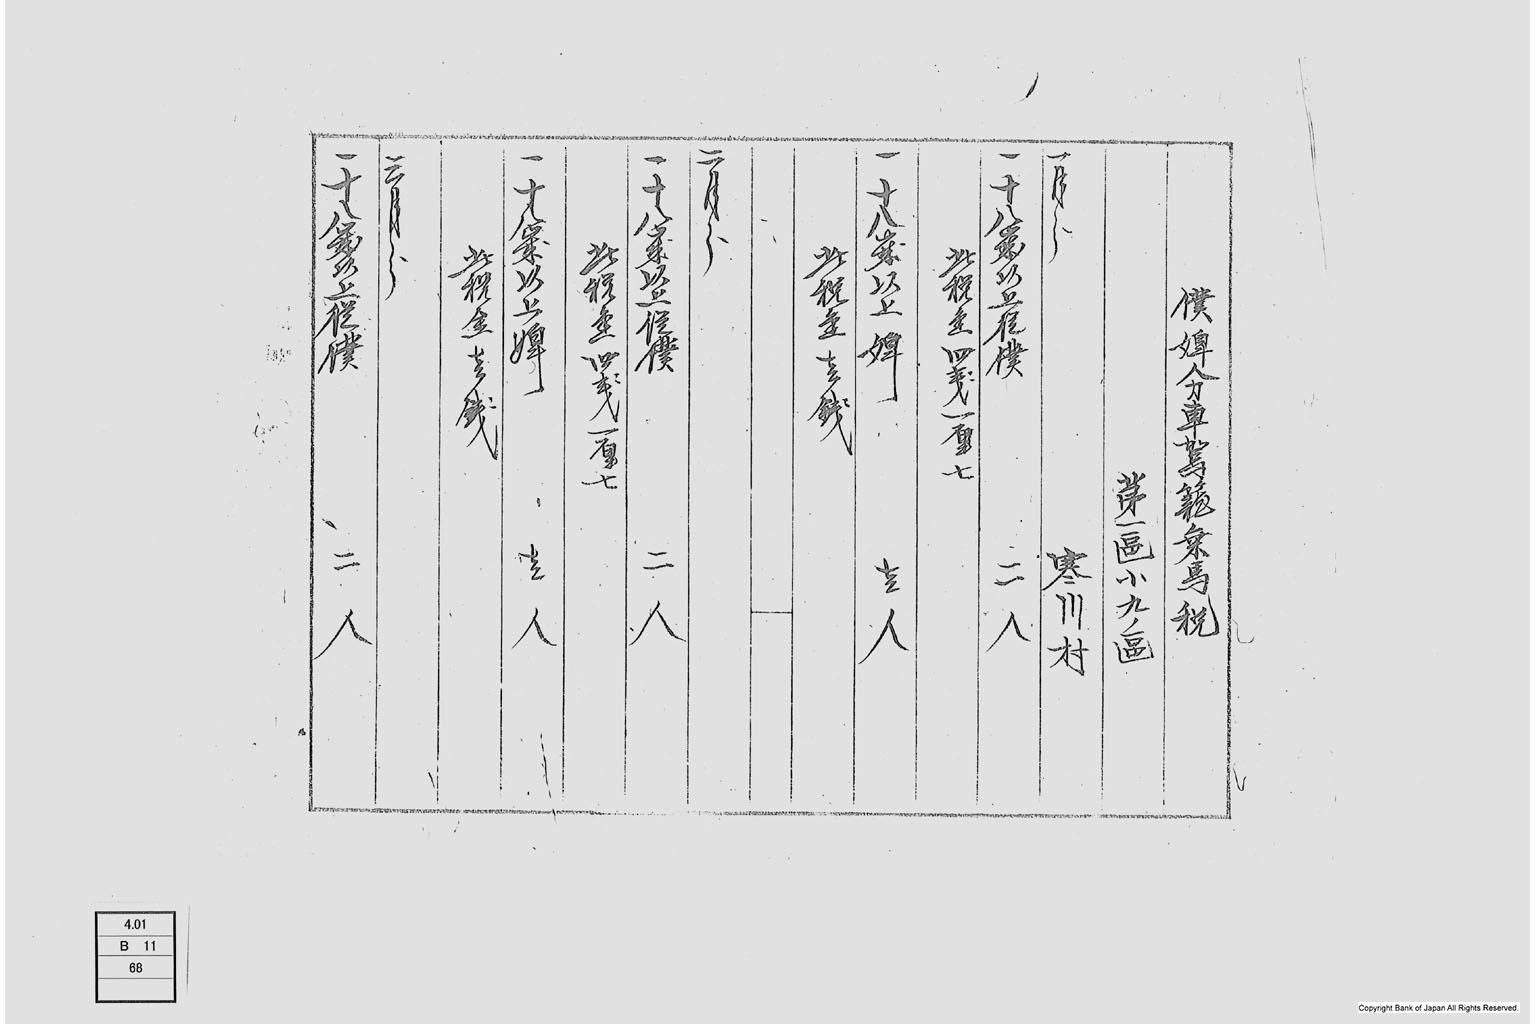 僕婢人力車駕籠乗馬税
第一區小九ノ區
寒川村
一月分
一十八歳以上従僕 二人
此税金四銭一厘七
一十八歳以上婢 壱人
此税金壱銭
二月分
一十八歳以上従僕 二人
此税金四銭一厘七
一十八歳以上婢 壱人
此税金壱銭
三月分
一十八歳以上従僕 二人
4.01
B 11
68
Copyright Bank of Japan All Rights Reserved.